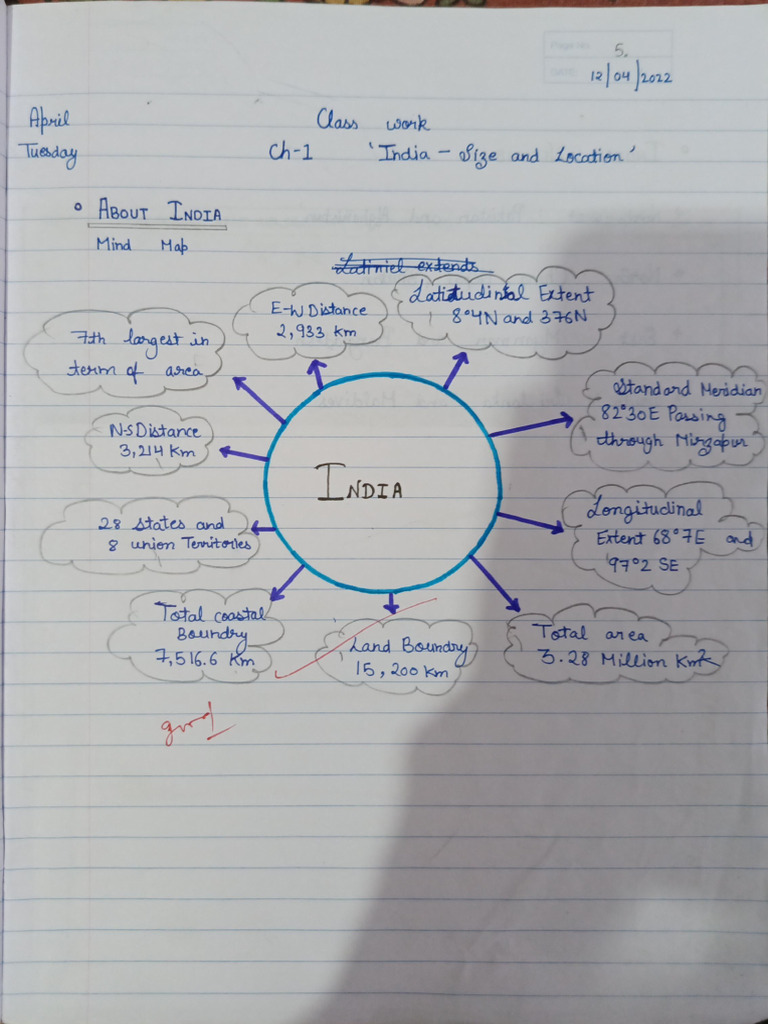 Page No. 5.
DATE 12/04/2022
April Class work
Tuesday Ch-1 'India - Size and Location'
• ABOUT INDIA
Mind Map
Latiniel extends
E-W Distance
2,933 km
Latitudinal Extent
8°4N and 376N
7th largest in
term of area
Standard Meridian
82°30E Passing
through Mirzapur
N-S Distance
3,214 Km
INDIA
Longitudinal
Extent 68°7E and
97°2 SE
28 states and
8 union Territories
Total coastal
Boundry
7,516.6 Km
Land Boundry
15,200 km
Total area
3.28 Million Km²
good